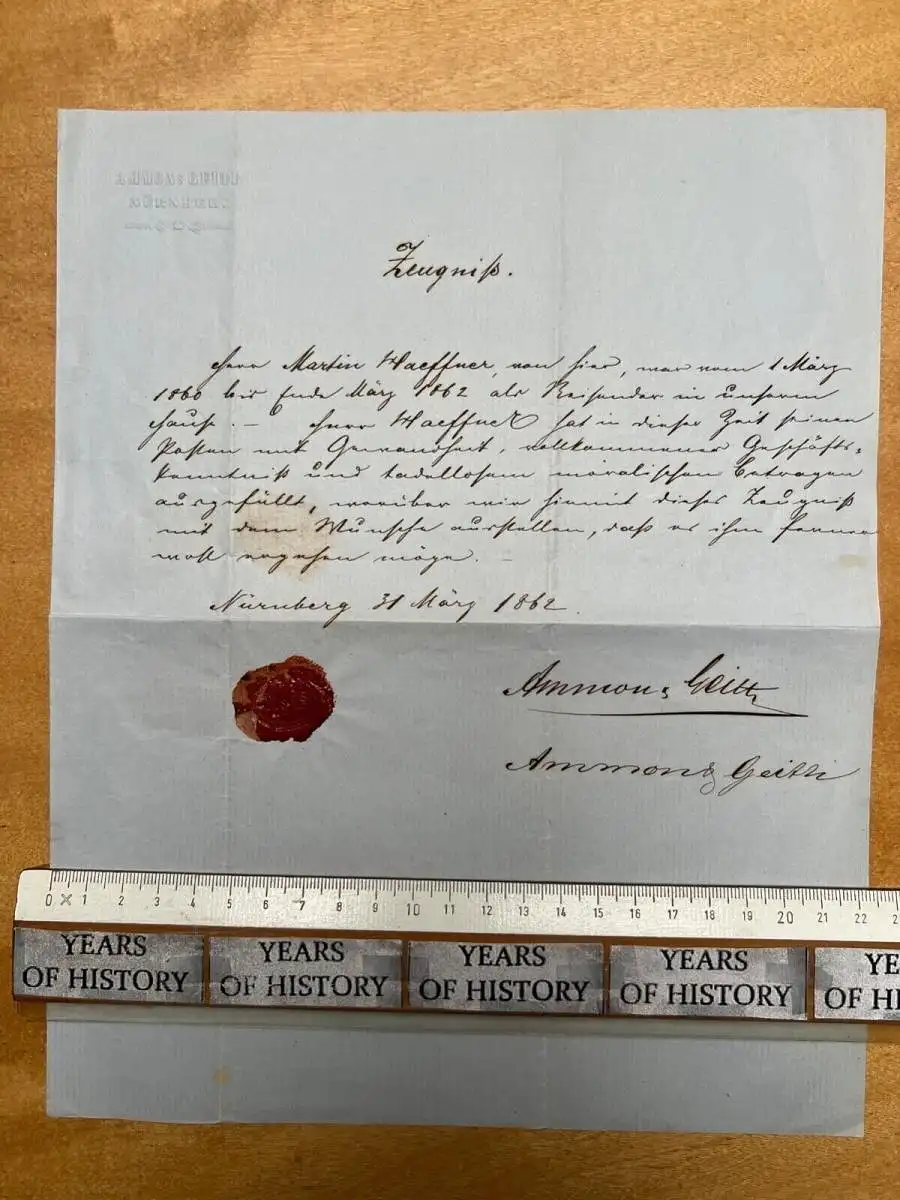 NÜRNBERG
Zeugniß.
Herr Martin Haeffner, von hier, war vom 1 März
1860 bis Ende März 1862 als Reisender in unserem
Hause. — Herr Haeffner hat in dieser Zeit seinen
Posten mit Gewandheit, vollkommener Geschäfts=
kenntniß und tadellosem moralischen Betragen
ausgefüllt, worüber wir hiermit dieses Zeugniß
mit dem Wunsche ausstellen, daß es ihm ferner
wohl ergehen möge. —
Nürnberg 31 März 1862.
Ammon &
Ammon &
0 1 2 3 4 5 6 7 8 9 10 11 12 13 14 15 16 17 18 19 20 21 22
YEARS YEARS YEARS YEARS YE
OF HISTORY OF HISTORY OF HISTORY OF HISTORY OF HI